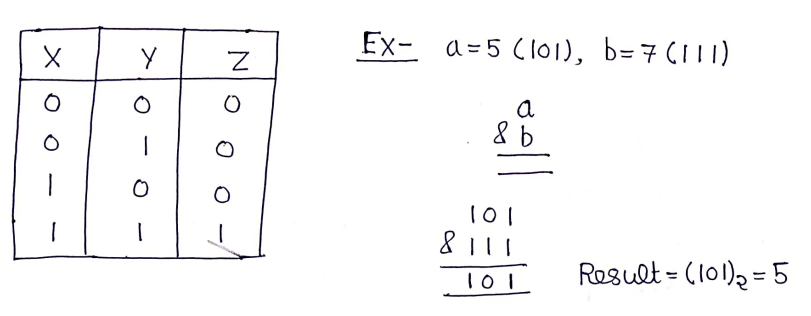 X Y Z
0 0 0
0 1 0
1 0 0
1 1 1
Ex- a=5 (101), b=7 (111)
a
& b
101
& 111
101
Result = (101)₂ = 5